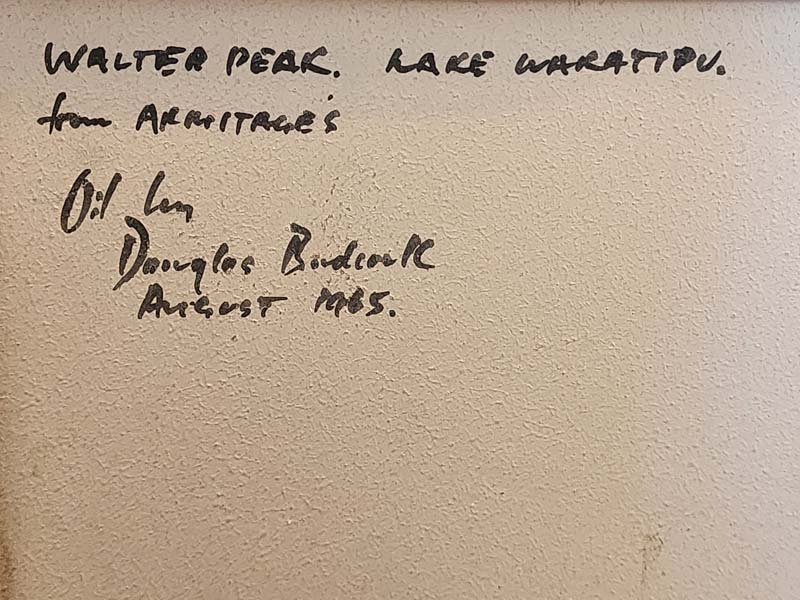 WALTER PEAK. LAKE WAKATIPU.
from ARMITAGE'S
Oil by
Douglas Badcock
AUGUST 1965.